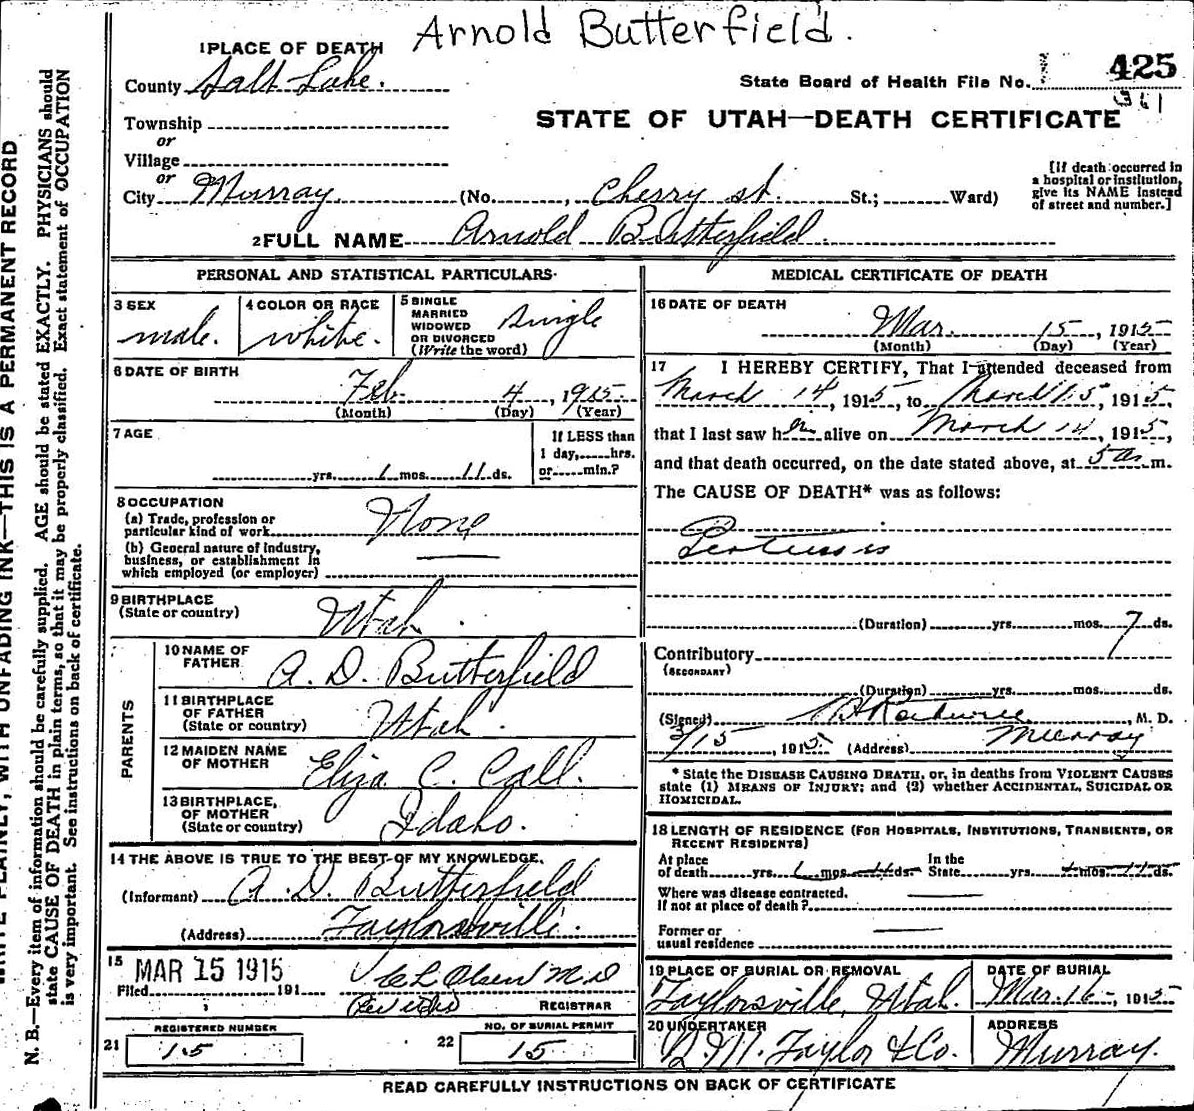 Arnold Butterfield.
1 PLACE OF DEATH
County Salt Lake.
State Board of Health File No. 425
361
Township
or
STATE OF UTAH—DEATH CERTIFICATE
Village
or
City Murray. (No. , Cherry st. St.; Ward)
[If death occurred in
a hospital or institution,
give its NAME instead
of street and number.]
2 FULL NAME Arnold Butterfield.
PERSONAL AND STATISTICAL PARTICULARS
3 SEX
male.
4 COLOR OR RACE
white.
5 SINGLE
MARRIED
WIDOWED
OR DIVORCED
(Write the word)
Single
6 DATE OF BIRTH
Feb. 4, 1915
(Month) (Day) (Year)
7 AGE
yrs. 1 mos. 11 ds.
If LESS than
1 day, hrs.
or min.?
8 OCCUPATION
(a) Trade, profession or
particular kind of work
None
(b) General nature of industry,
business, or establishment in
which employed (or employer)
9 BIRTHPLACE
(State or country)
Utah.
PARENTS
10 NAME OF
FATHER
A. D. Butterfield
11 BIRTHPLACE
OF FATHER
(State or country)
Utah.
12 MAIDEN NAME
OF MOTHER
Eliza C. Call.
13 BIRTHPLACE,
OF MOTHER
(State or country)
Idaho.
14 THE ABOVE IS TRUE TO THE BEST OF MY KNOWLEDGE,
(Informant) A. D. Butterfield
(Address) Taylorsville.
15
MAR 15 1915
Filed 191
Olsen M.D
REGISTRAR
REGISTERED NUMBER
21 15
NO. OF BURIAL PERMIT
22 15
MEDICAL CERTIFICATE OF DEATH
16 DATE OF DEATH
Mar. 15, 1915
(Month) (Day) (Year)
17 I HEREBY CERTIFY, That I attended deceased from
March 14, 1915, to March 15, 1915,
that I last saw him alive on March 14, 1915,
and that death occurred, on the date stated above, at 5 a m.
The CAUSE OF DEATH* was as follows:
Pertussis
(Duration) yrs. mos. 7 ds.
Contributory
(SECONDARY)
(Duration) yrs. mos. ds.
(Signed) , M. D.
3/15, 1915. (Address) Murray
* State the DISEASE CAUSING DEATH, or, in deaths from VIOLENT CAUSES
state (1) MEANS OF INJURY; and (2) whether ACCIDENTAL, SUICIDAL OR
HOMICIDAL.
18 LENGTH OF RESIDENCE (FOR HOSPITALS, INSTITUTIONS, TRANSIENTS, OR
RECENT RESIDENTS)
At place
of death yrs. 1 mos. 11 ds.
In the
State yrs. 1 mos. 11 ds.
Where was disease contracted.
If not at place of death?
Former or
usual residence
19 PLACE OF BURIAL OR REMOVAL
Taylorsville, Utah.
DATE OF BURIAL
Mar. 16, 1915
20 UNDERTAKER
Taylor & Co.
ADDRESS
Murray.
READ CAREFULLY INSTRUCTIONS ON BACK OF CERTIFICATE
WITH UNFADING INK—THIS IS A PERMANENT RECORD
N. B.—Every item of information should be carefully supplied. AGE should be stated EXACTLY. PHYSICIANS should
state CAUSE OF DEATH in plain terms, so that it may be properly classified. Exact statement of OCCUPATION
is very important. See instructions on back of certificate.